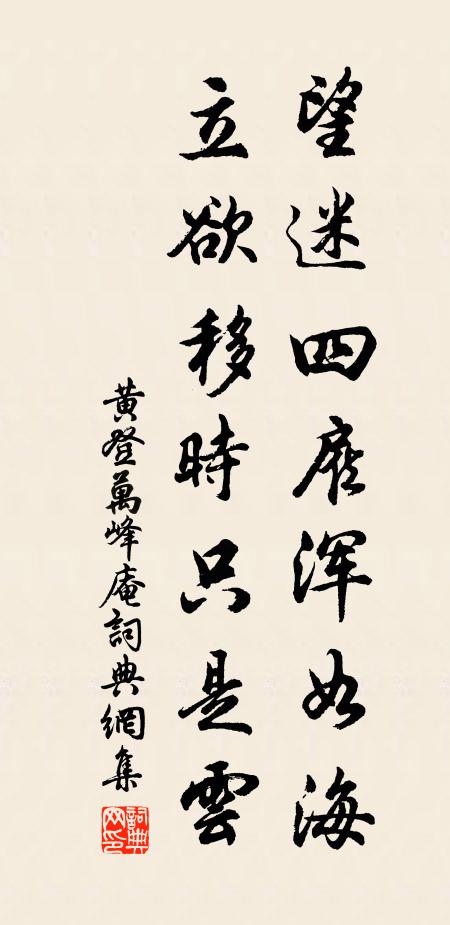 望迷四浑如海
立欲移時只是雲
黄登萬峰庵詞典網集
詞典
网印